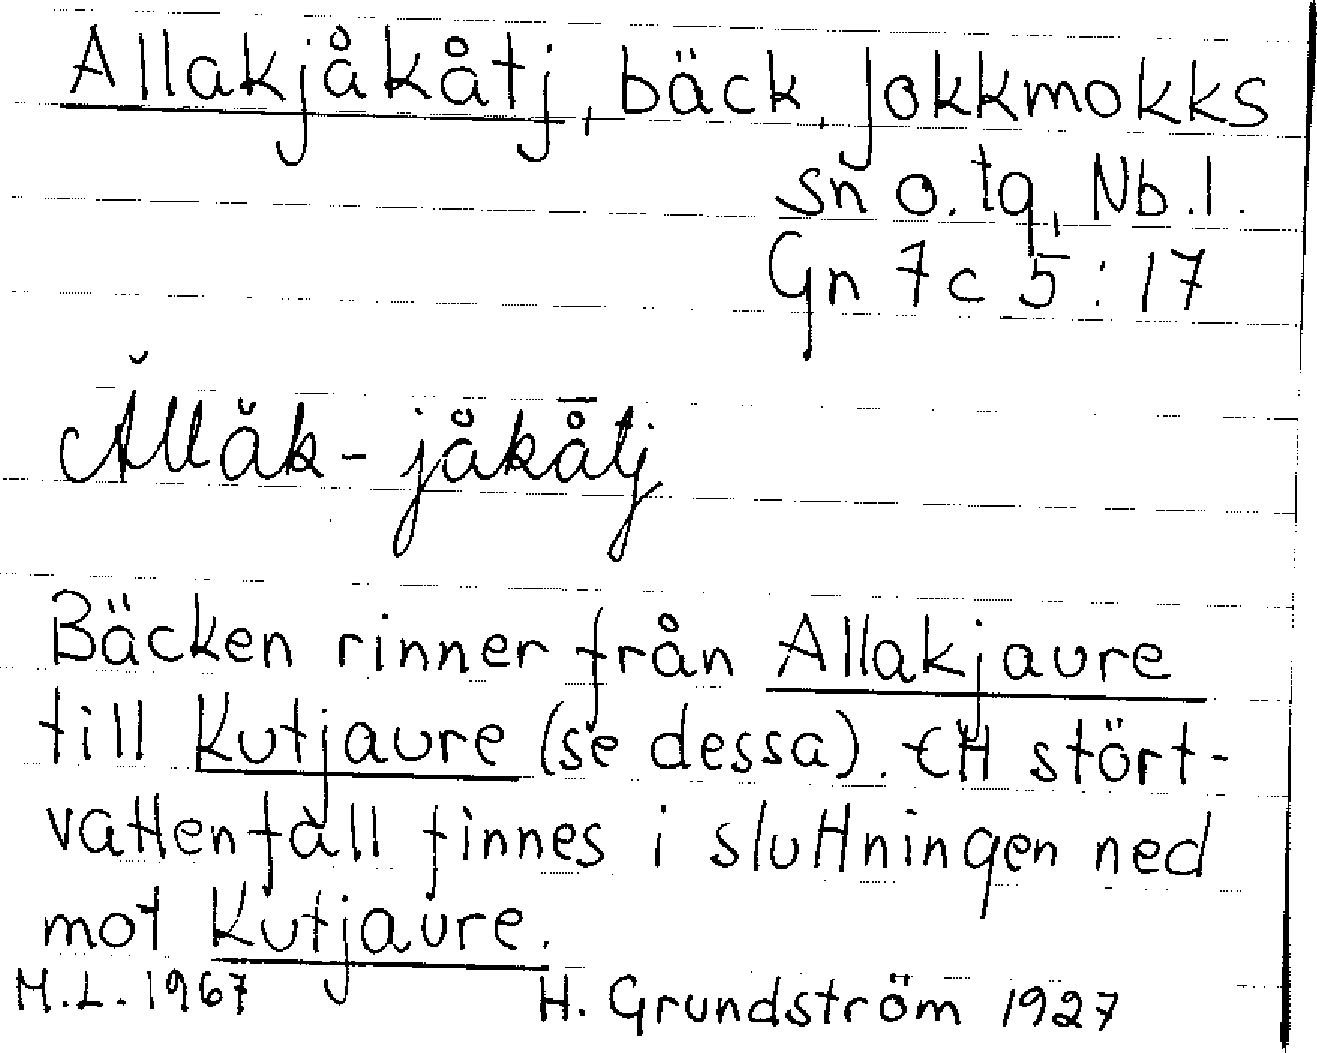 Allakjåkåtj, bäck, Jokkmokks
sn o. tg, Nb.l.
Gn 7c 5:17
Ăllăk-jåkå̄tj
Bäcken rinner från Allakjaure
till Kutjaure (se dessa). Ett stört-
vattenfall finnes i sluttningen ned
mot Kutjaure.
M.L. 1967 H. Grundström 1927